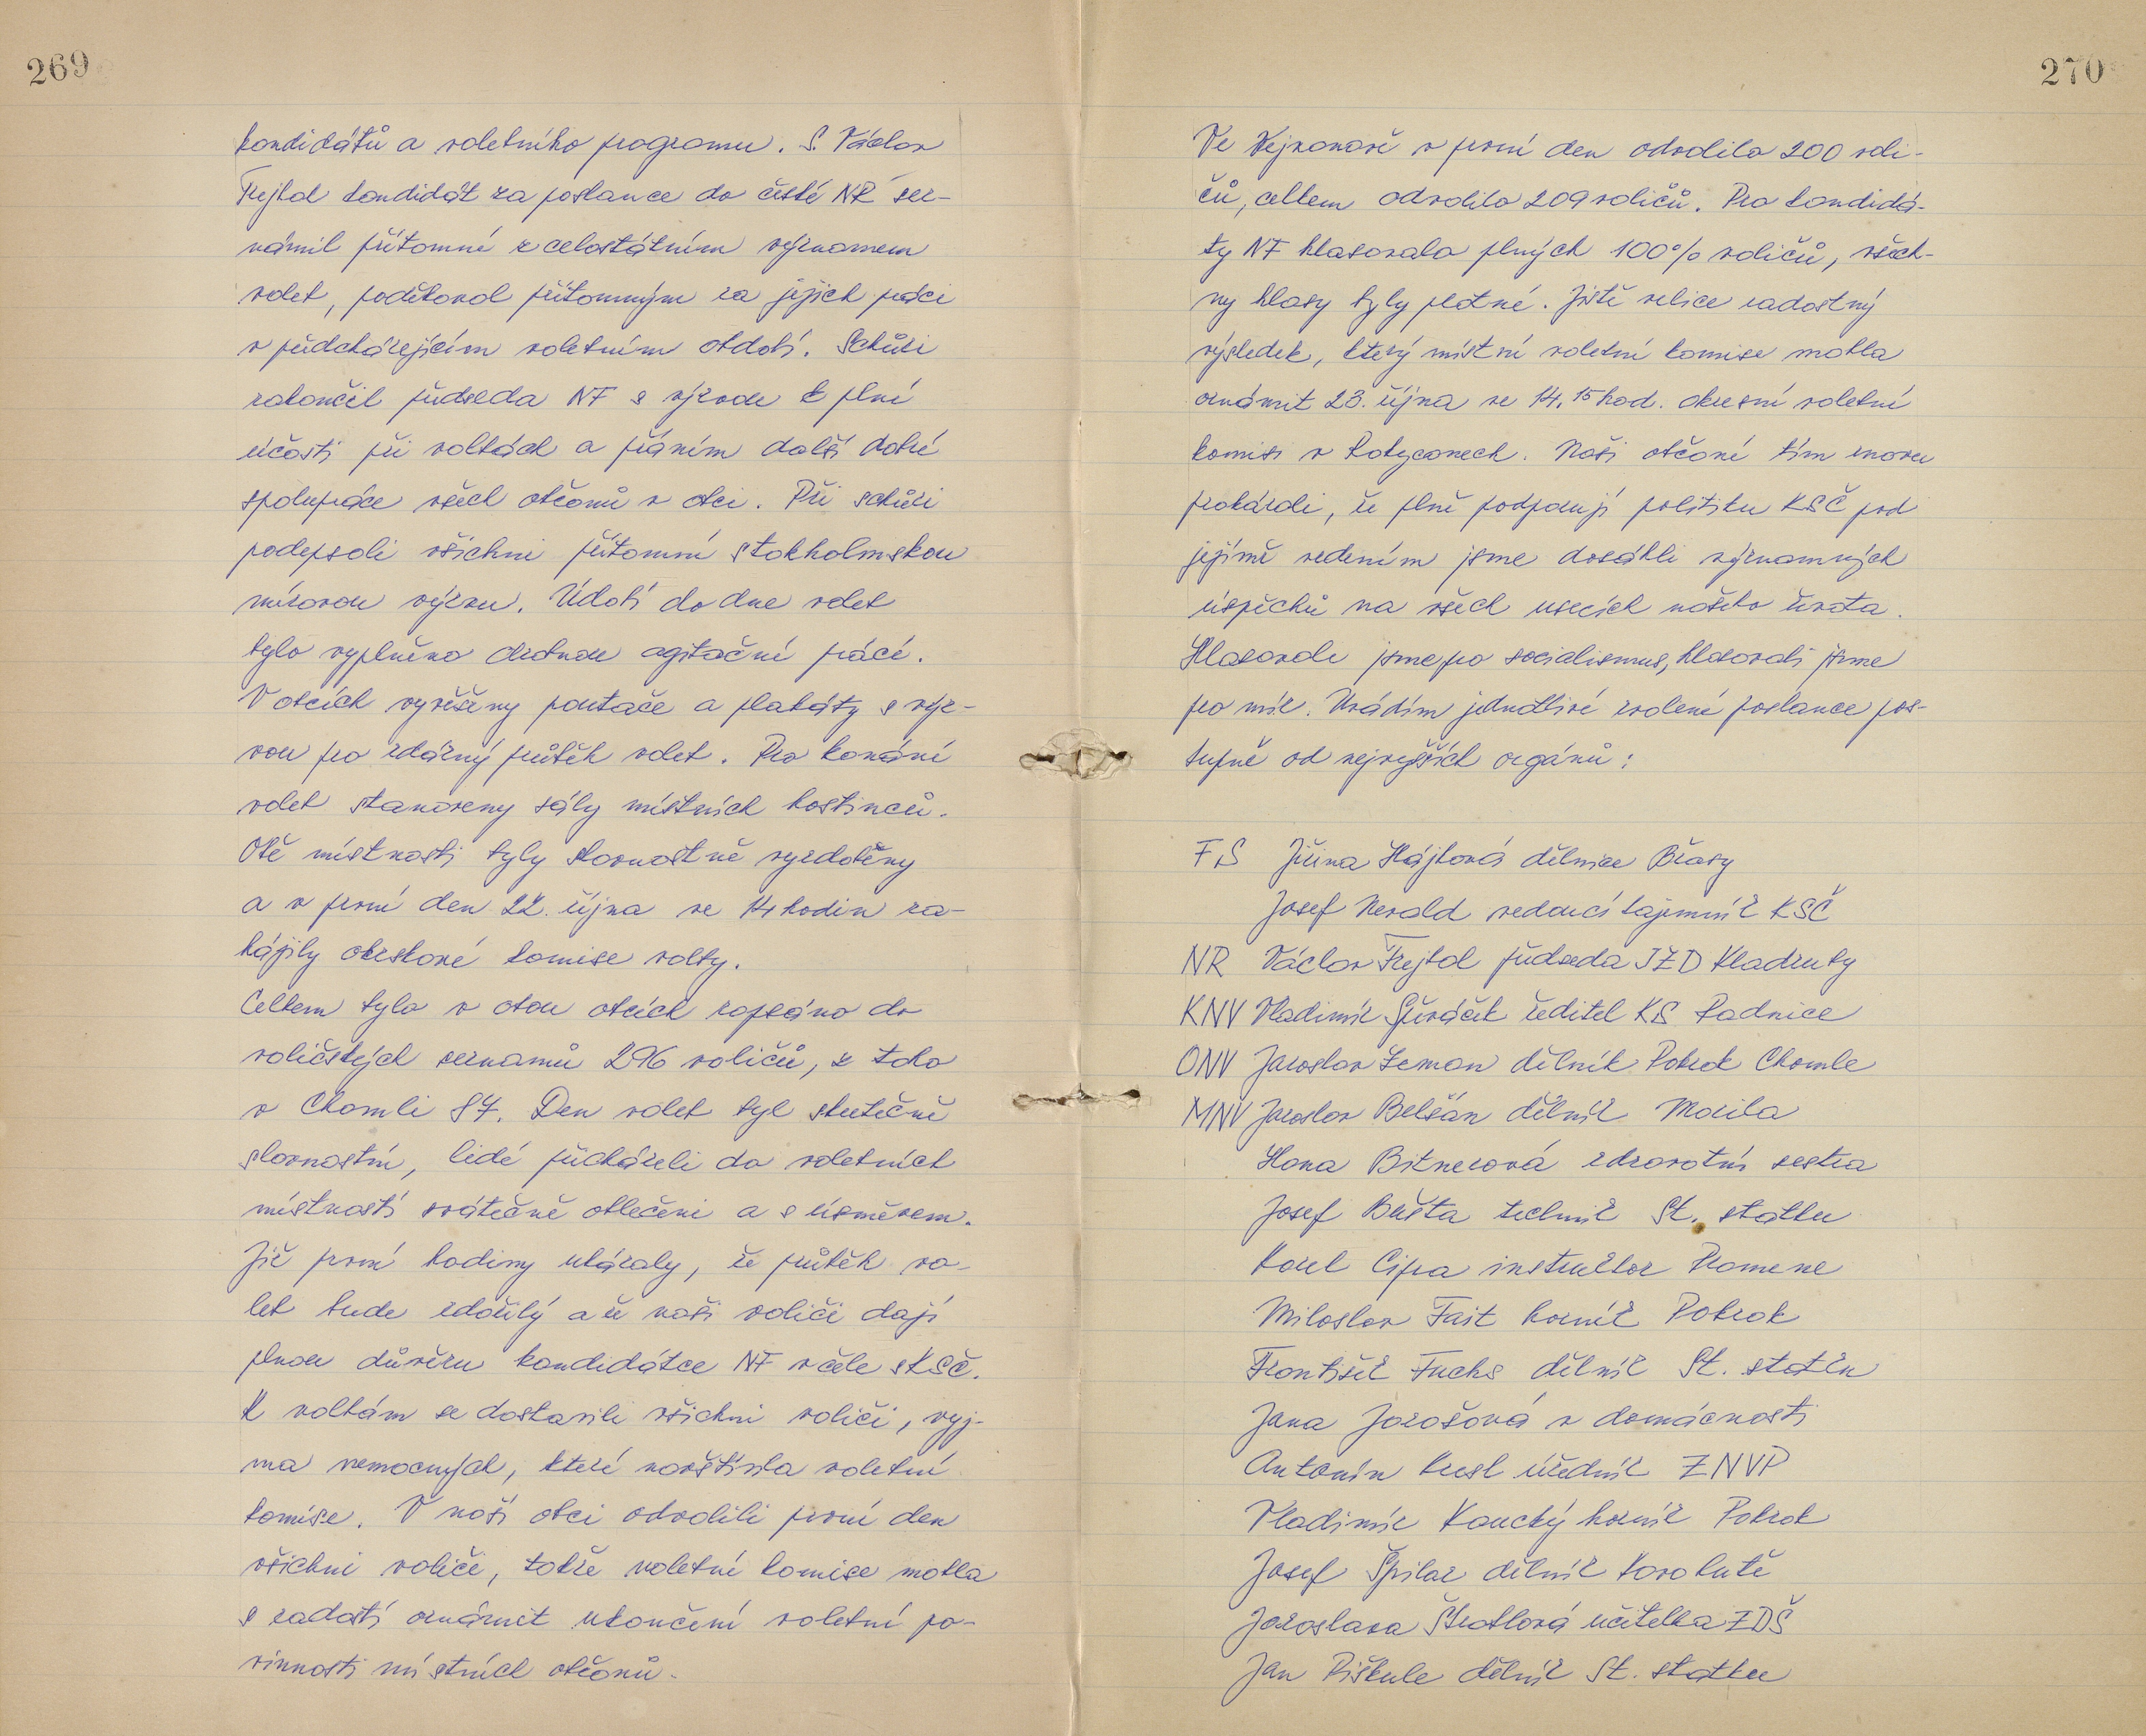 269
kandidátů a volebního programu. S. Václav
Frejtal kandidát za poslance do české NR sez-
námil přítomné z celostátním významem
voleb, poděkoval přítomným za jejich práci
v předcházejícím volebním období. Schůzi
zakončil předseda NF s výzvou k plné
účasti při volbách a přáním další dobré
spolupráce všech občanů v obci. Při schůzi
podepsali všichni přítomní stokholmskou
mírovou výzvu. Údobí do dne voleb
bylo vyplněno drobnou agitační prácí.
V obcích vyvěšeny poutače a plakáty s výz-
vou pro zdárný průběh voleb. Pro konání
voleb stanoveny sály místních hostinců.
Obě místnosti byly slavnostně vyzdobeny
a v první den 22. října ve 14 hodin za-
hájily okrskové komise volby.
Celkem bylo v obou obcích zapsáno do
voličských seznamů 296 voličů, z toho
v Chomli 87. Den voleb byl skutečně
slavnostní, lidé přicházeli do volebních
místností svátečně oblečeni a s úsměvem.
Již první hodiny ukázaly, že průběh vo-
leb bude zdařilý a že naši voliči dají
plnou důvěru kandidátce NF v čele s KSČ.
K volbám se dostavili všichni voliči, vyj-
ma nemocných, které navštívila volební
komise. V naší obci odvolili první den
všichni voliči, takže volební komise mohla
s radostí oznámit ukončení volební po-
vinnosti místních občanů.
270
Ve Vejvanově v první den odvolilo 200 voli-
čů, celkem odvolilo 209 voličů. Pro kandidá-
ty NF hlasovalo plných 100% voličů, všech-
ny hlasy byly platné. Jistě velice radostný
výsledek, který místní volební komise mohla
oznámit 23. října ve 14.15 hod. okresní volební
komisi v Rokycanech. Naši občané tím znovu
prokázali, že plně podporují politiku KSČ pod
jejímž vedením jsme dosáhli významných
úspěchů na všech usecích našeho života.
Hlasovali jsme pro socialismus, hlasovali jsme
pro mír. Uvádím jednotlivé zvolené poslance pos-
tupně od nejvyšších orgánů:
FS Jiřina Hájková dělnice Břasy
Josef Nevald vedoucí tajemník KSČ
NR Václav Frejtal předseda JZD Kladruby
KNV Vladimír Spěváček ředitel KS Radnice
ONV Jaroslav Zeman dělník Pokrok Chomle
MNV Jaroslav Belšán dělník Mozila
Hana Bitnerová zdravotní sestra
Josef Bušta technik St. statku
Karel Cipra instruktor Pramene
Miloslav Fait horník Pokrok
František Fuchs dělník St. statku
Jana Jarošová v domácnosti
Antonín Kresl úředník ZNVP
Vladimír Koucký horník Pokrok
Josef Špilar dělník Kovohutě
Jaroslava Škrablová učitelka ZDŠ
Jan Piškule dělník St. statku